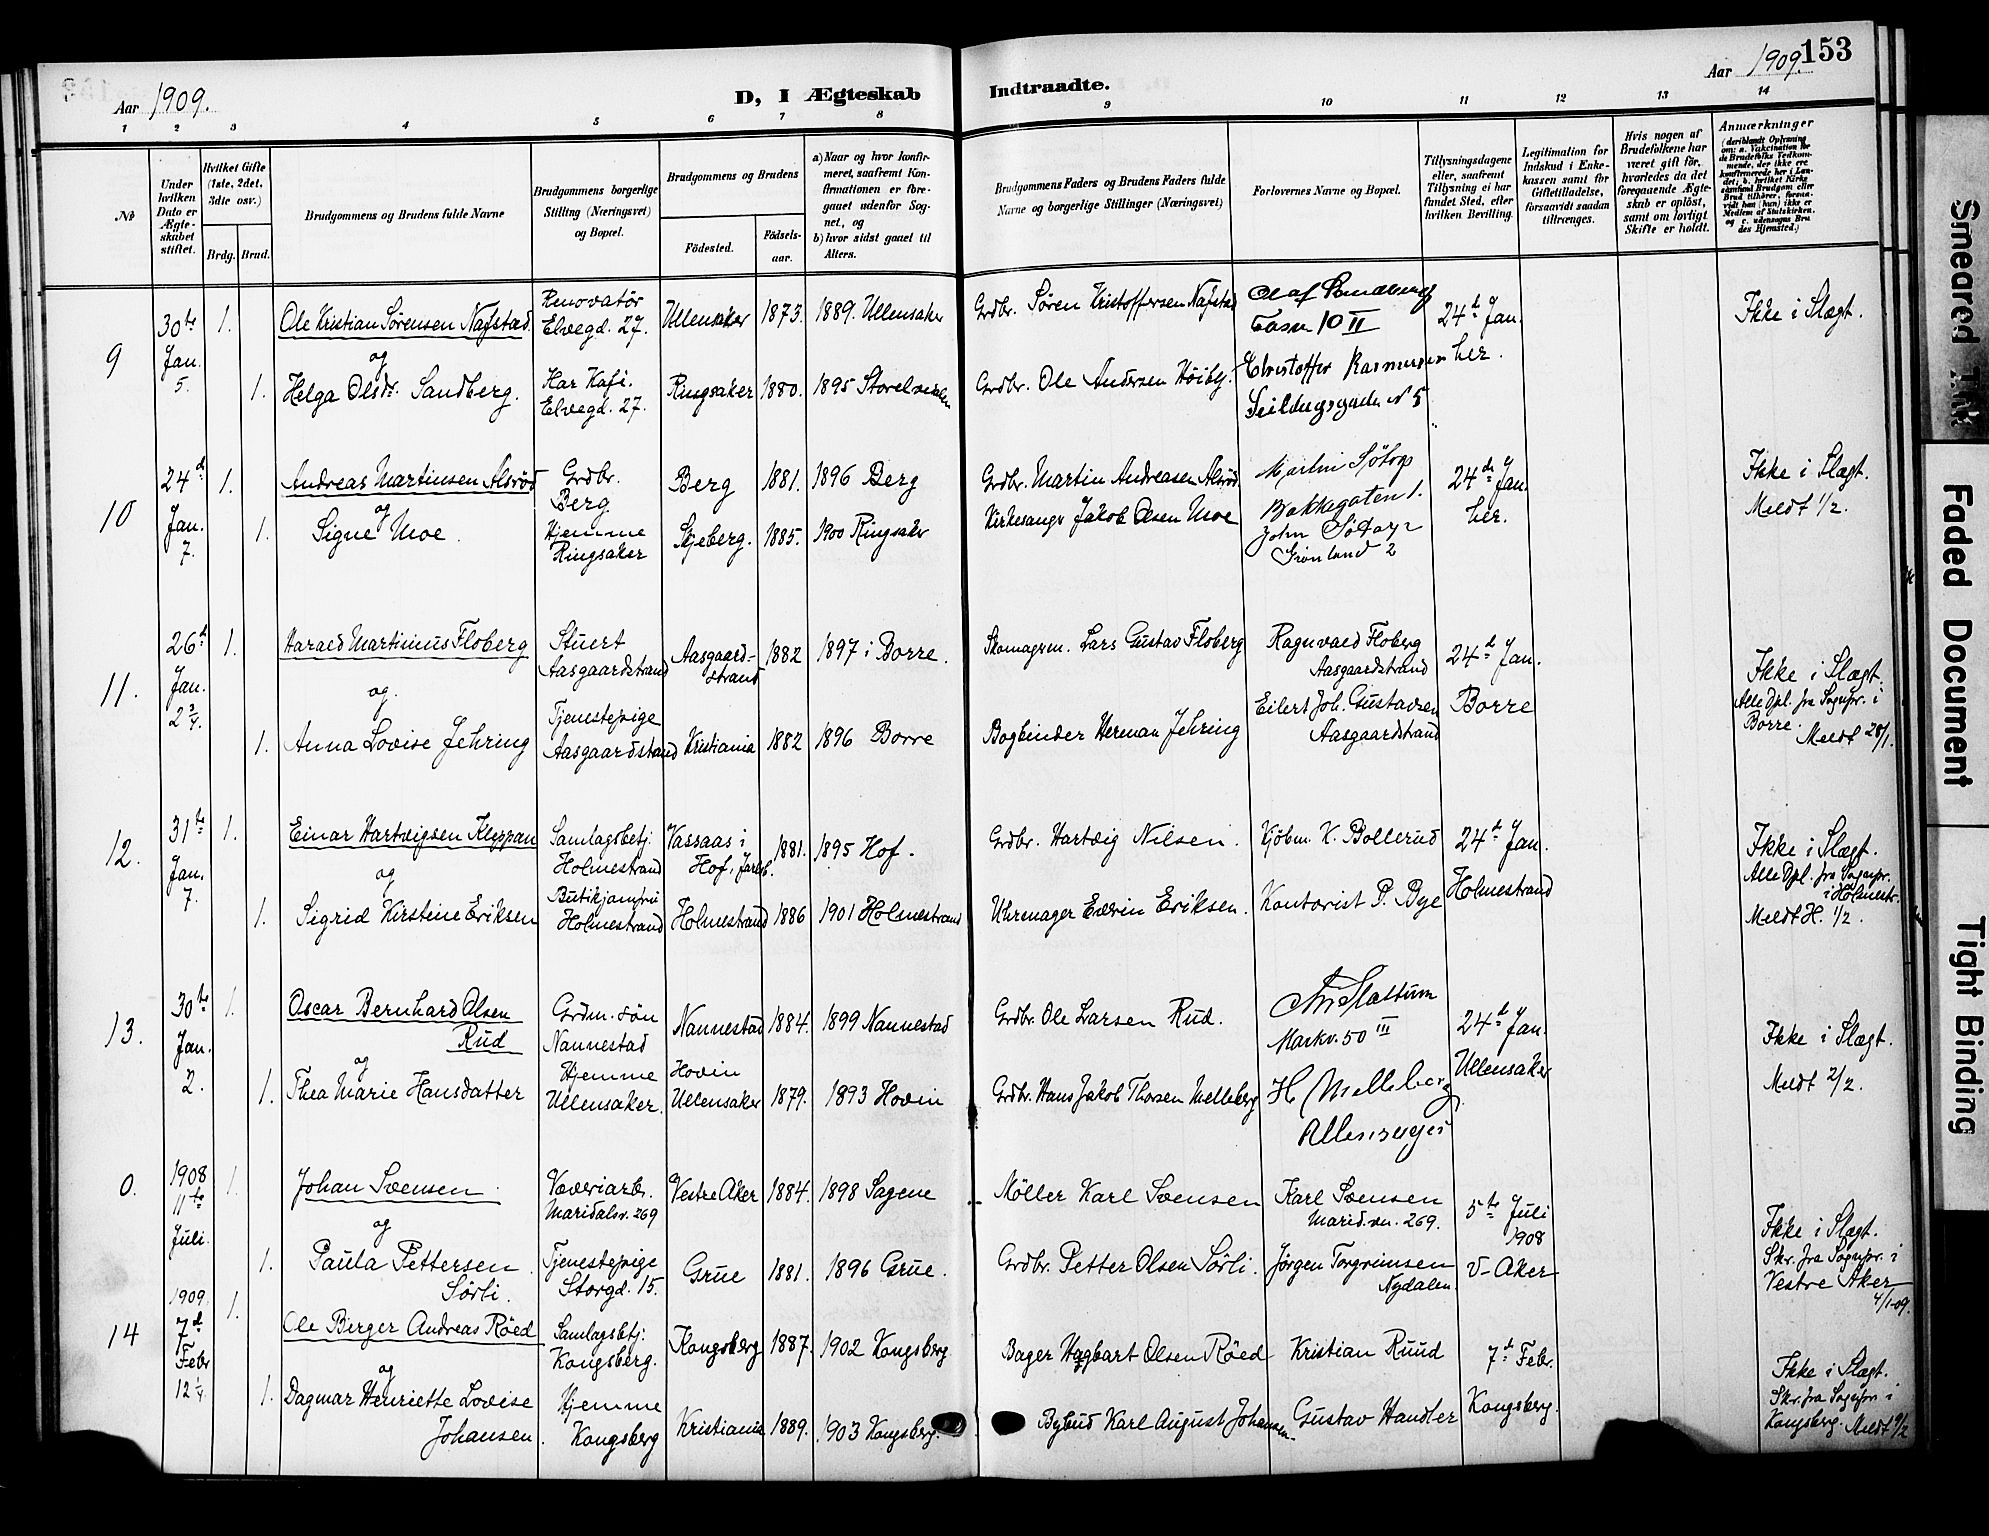 153
Aar 1909.
D, I Ægteskab
Indtraadte.
Aar 1909.
1 2 3 4 5 6 7 8 9 10 11 12 13 14
No
Under hvilken Dato er Ægteskabet stiftet.
Hvilket Gifte (1ste, 2det, 3die osv.)
Brdg. Brud.
Brudgommens og Brudens fulde Navne
Brudgommens borgerlige Stilling (Næringsvei) og Bopæl.
Brudgommens og Brudens
Födested.
Födsels-aar.
a) Naar og hvor konfirmeret, saafremt Konfirmationen er foregaaet udenfor Sognet, og
b) hvor sidst gaaet til Alters.
Brudgommens Faders og Brudens Faders fulde Navne og borgerlige Stillinger (Næringsvei)
Forlovernes Navne og Bopæl.
Tillysningsdagene eller, saafremt Tillysning ei har fundet Sted, efter hvilken Bevilling.
Legitimation for Indskud i Enkekassen samt for Giftetilladelse, forsaavidt saadan tiltrenges.
Hvis nogen af Brudefolkene har været gift för, hvorledes da det foregaaende Ægteskab er oplöst, samt om lovligt Skifte er holdt.
Anmærkninger
9
30te Jan. 5.
1.
Ole Kristian Sörensen Nafstad
Renovatör
Elvegd. 27.
Ullensaker
1873.
1889. Ullensaker
Grdbr. Sören Kristoffersen Nafstad
Tasm 10 II
24d Jan.
her.
Ikke i Slægt.
og
1.
Helga Olsdr. Sandberg.
Har Kafé.
Elvegd. 27.
Ringsaker
1880.
1895 Storelvedalen
Grdbr. Ole Andersen Höiby.
Christoffer Rasmussen
10
24d Jan. 7.
1.
Andreas Martinsen Alsröd
Grdbr.
Berg.
Berg
1881.
1896 Berg
Grdbr. Martin Andreasen Alsröd
Martin Sötorp
Bakkegaten 1.
24de Jan.
her.
Ikke i Slægt.
Meldt 1/2.
og
1.
Signe Moe.
Hjemme
Ringsaker
Skjeberg.
1885.
1900 Ringsaker
Kirkesangr Jakob Olsen Moe
John Sötorp
Grönland 2
11.
26d Jan. 2 3/4.
1.
Harald Martinius Floberg
Stuert
Aasgaardstrand
Aasgaard-
strand
1882
1897 i Borre.
Skomagerm. Lars Gustav Floberg
Ragnvald Floberg
Aasgaardstrand
24d Jan.
Borre
Ikke i Slægt.
Alle Opl. fra Sognpr. i
Borre. Meldt 28/1.
og.
1.
Anna Lovise Jehring
Tjenestepige
Aasgaardstrand
Kristiania
1882
1896 Borre
Bogbinder Herman Jehring
Eilert Joh. Gustavsen
Aasgaardstrand
12.
31te Jan. 7.
1.
Einar Hartvigsen Kleppan
Samlagsbetj.
Holmestrand
Vassaas i
Hof, Jarlsb.
1881.
1895 Hof.
Grdbr. Hartvig Nilsen.
Kjöbm. K. Bollerud
24d Jan.
Holmestrand
Ikke i Slægt.
Alle Opl. fra Sognpr.
i Holmestr.
Meldt H. 1/2.
og
1.
Sigrid Kirstine Eriksen
Butikjomfru
Holmestrand
Holmestrand
1886
1901 Holmestrand
Uhrmager Edvin Eriksen.
Kontorist P. Bye
13.
30te Jan. 2.
1.
Oscar Bernhard Olsen
Rud
Grdm. sön
Nannestad
Nannestad
1884.
1899 Nannestad
Grdbr. Ole Larsen Rud.
Markv. 50 III
24d Jan.
Ullensaker
Ikke i Slægt.
Meldt 2/2.
og
1.
Thea Marie Hansdatter
Hjemme
Ullensaker.
Hovin
Ullensaker
1879.
1893 Hovin
Grdbr. Hans Jakob Thorsen Melleberg
H Melleberg
0.
1908
11te Juli.
1.
Johan Svensen
Væveriarb.
Maridalsv. 269
Vestre Aker
1884.
1898 Sagene
Möller Karl Svensen
Karl Svensen
Marid.vn. 269.
5te Juli
1908
V- Aker
Ikke i Slægt.
Skr. fra Sognpr. i
Vestre Aker
4/1-09.
og
1.
Paula Pettersen
Sörli.
Tjenestepige
Storgd. 15.
Grue
1881.
1896 Grue.
Grdbr. Petter Olsen Sörli.
Jörgen Torgrimsen
Nydalen.
14
1909.
7d Febr
12 1/4.
1.
Ole Berger Andreas Röed
Samlagsbetj:
Kongsberg.
Kongsberg
1887.
1902 Kongsberg
Bager Hagbart Olsen Röed
Kristian Ruud
7d Febr.
Kongsberg.
Ikke i Slægt.
Skr. fra Sognpr. i
Kongsberg. Meldt 9/2
og
1.
Dagmar Henriette Lovise
Johansen.
Hjemme
Kongsberg
Kristiania
1889.
1903 Kongsberg.
Bybud Karl August Johansen.
Gustav Handler
Smeared Ink
Faded Document
Tight Binding